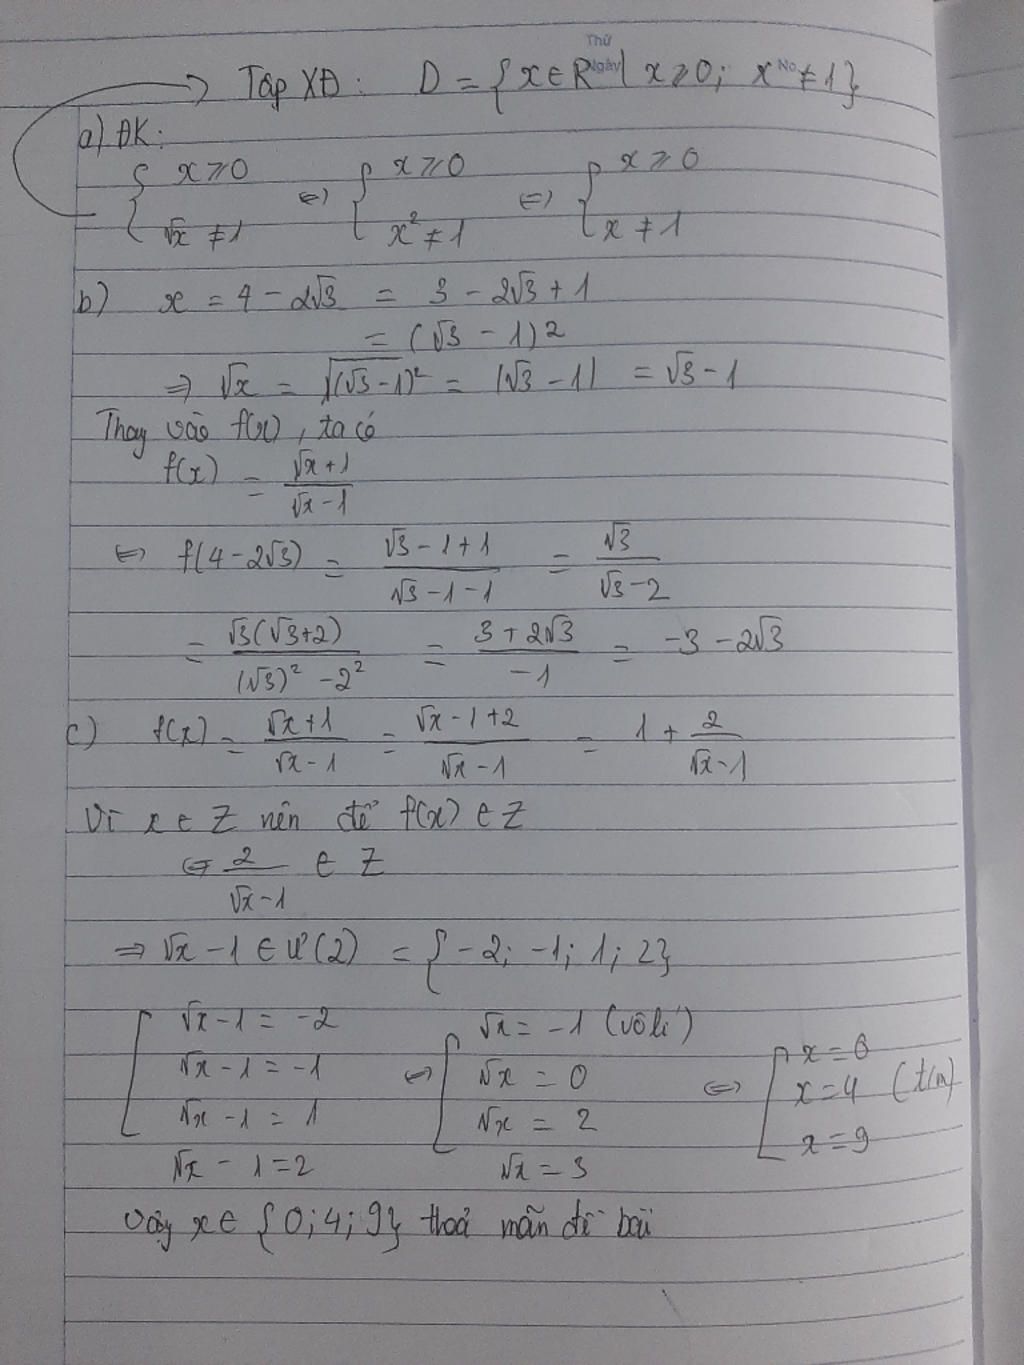 Thứ
Ngày No
Tập XĐ: D = {x ∈ R | x ⩾ 0; x ≠ 1}
a) ĐK:
{ x ⩾ 0 ⇔ { x ⩾ 0 ⇔ { x ⩾ 0
√x ≠ 1 x² ≠ 1 x ≠ 1
b) x = 4 - 2√3 = 3 - 2√3 + 1
= (√3 - 1)2
⇒ √x = √(√3-1)² = |√3 - 1| = √3 - 1
Thay vào f(x), ta có
f(x) = √x+1 / √x-1
⇔ f(4-2√3) = √3-1+1 / √3-1-1 = √3 / √3-2
= √3(√3+2) / (√3)² - 2² = 3+2√3 / -1 = -3 - 2√3
c) f(x) = √x+1 / √x-1 = √x-1+2 / √x-1 = 1 + 2 / √x-1
Vì x ∈ Z nên để f(x) ∈ Z
⇔ 2 / √x-1 ∈ Z
⇒ √x - 1 ∈ Ư(2) = {-2; -1; 1; 2}
[ √x - 1 = -2 ⇔ [ √x = -1 (vô lí) ⇔ [ x = 0
√x - 1 = -1 √x = 0 x = 4 (t/m)
√x - 1 = 1 √x = 2 x = 9
√x - 1 = 2 √x = 3
Vậy x ∈ {0; 4; 9} thoả mãn đề bài